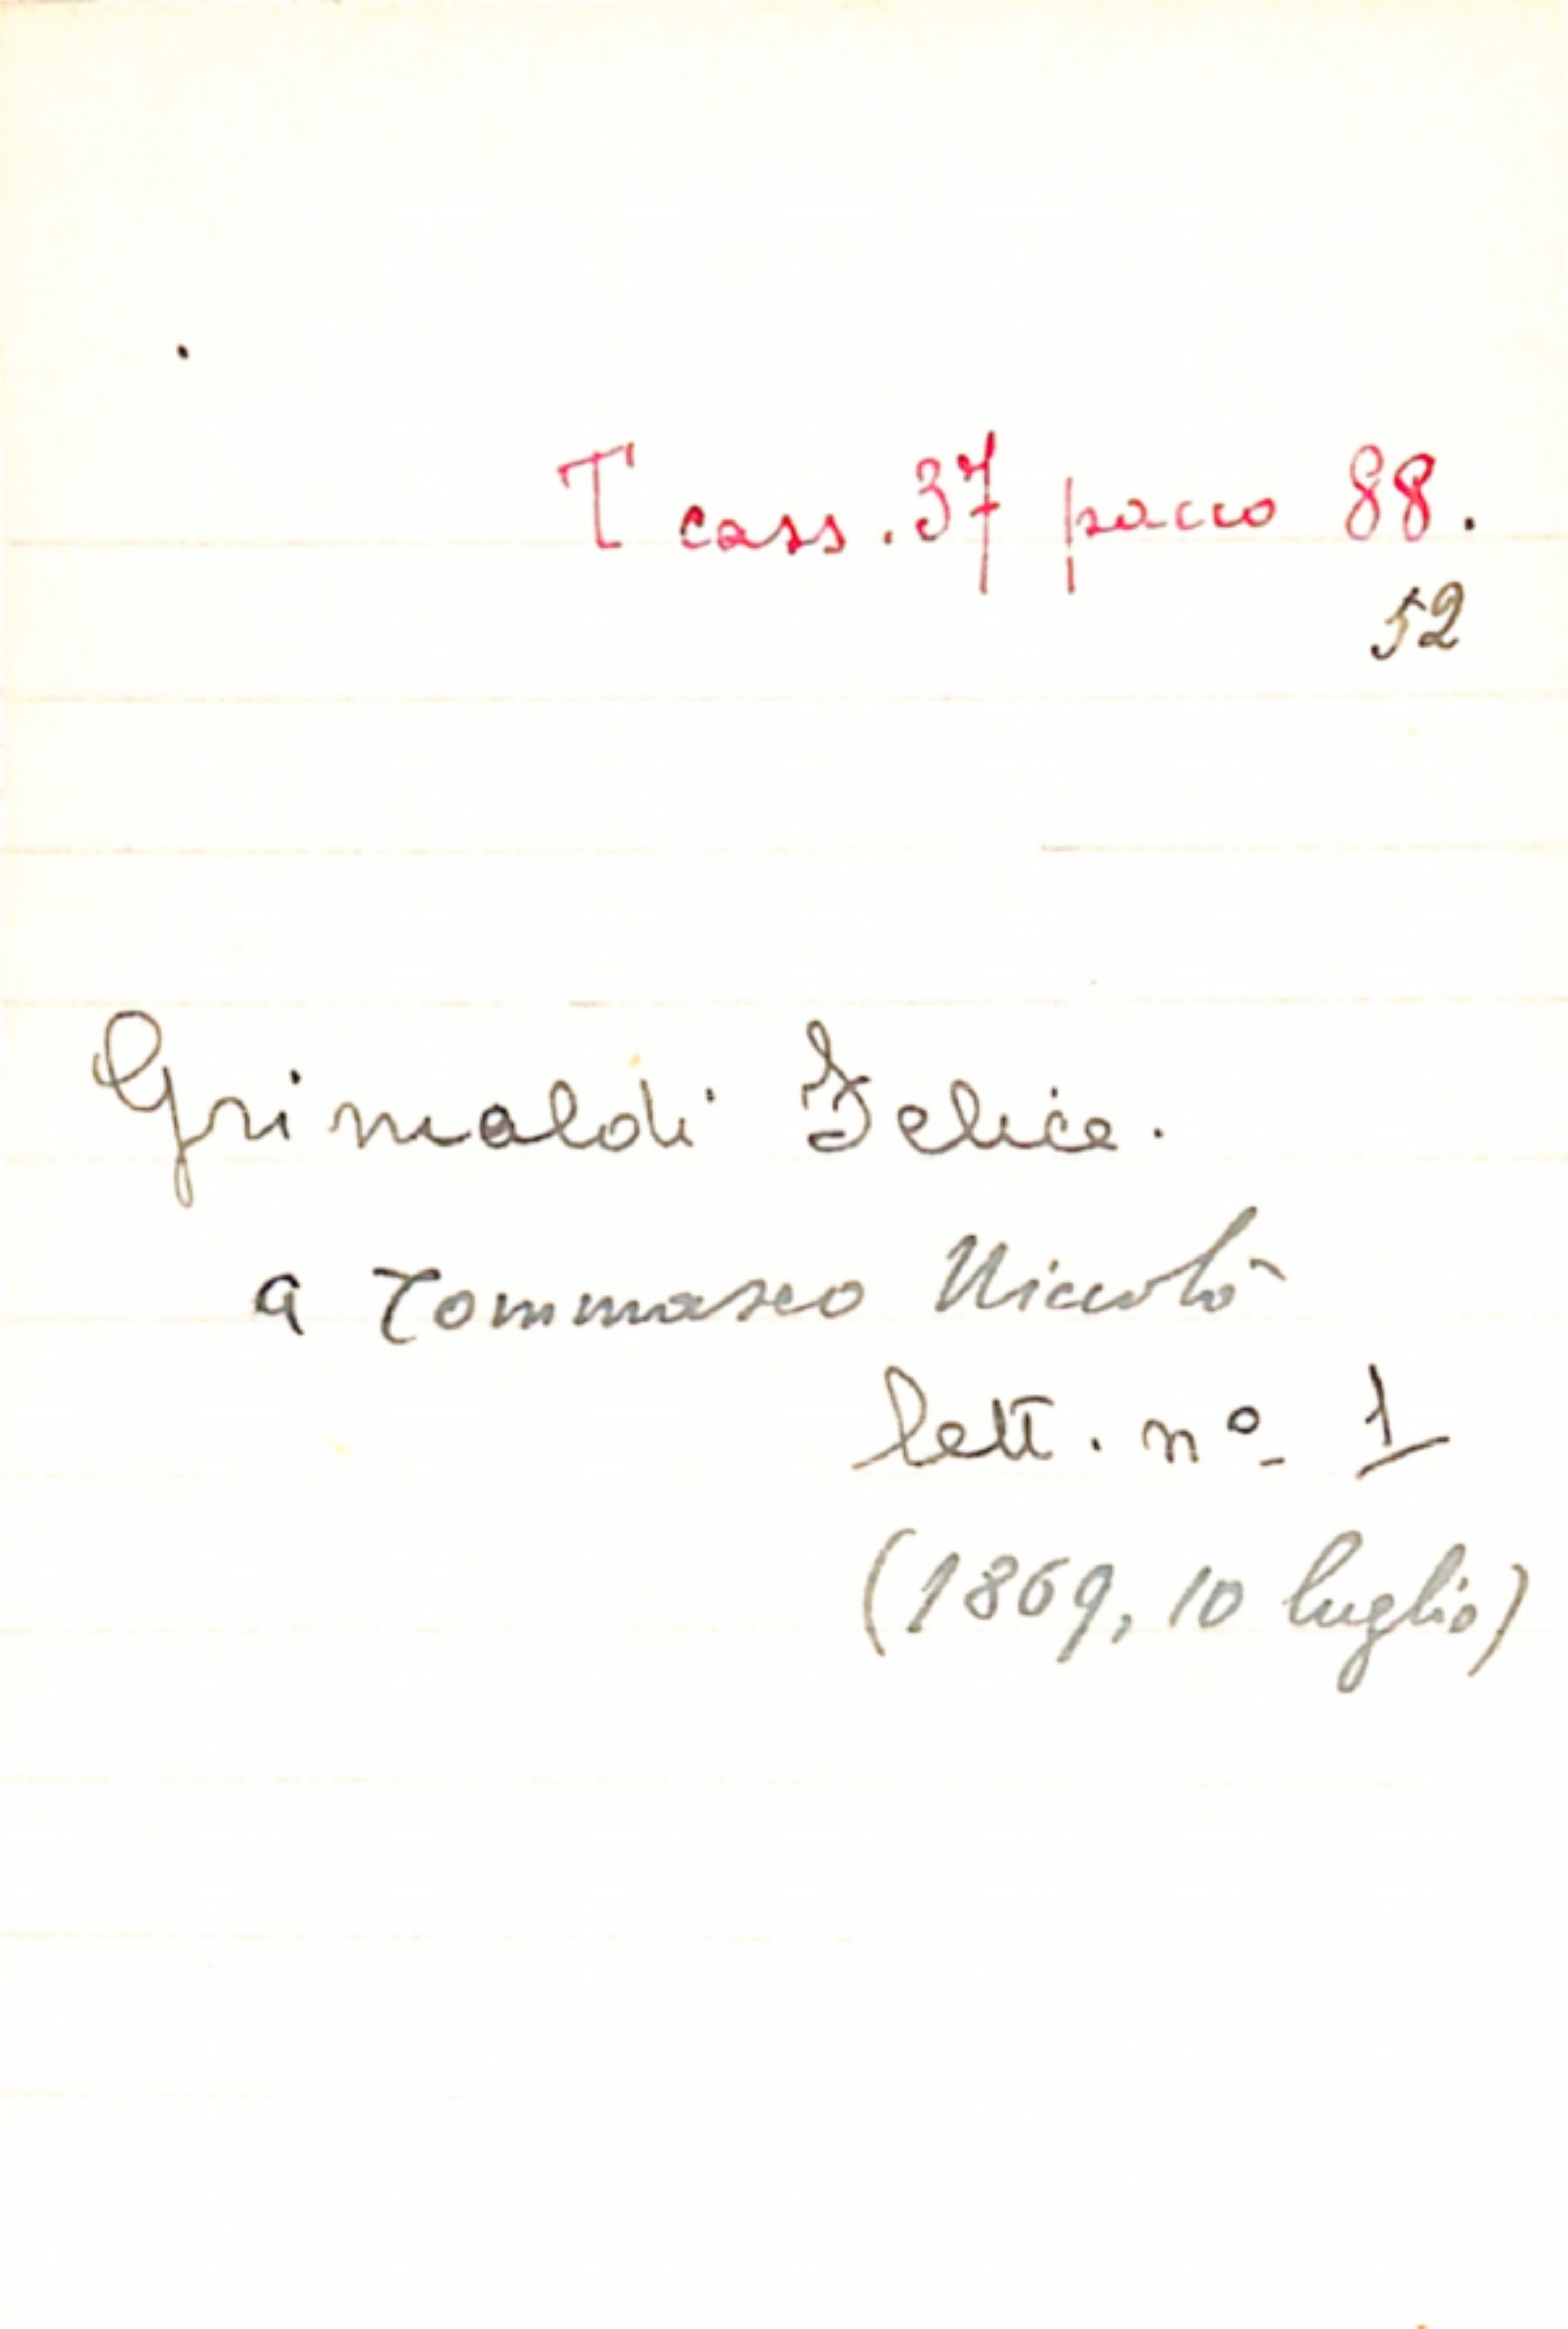 T cass. 37 pacco 88.
52
Grimaldi Felice.
a Tommaseo Niccolò
lett. nº 1
(1869, 10 luglio)